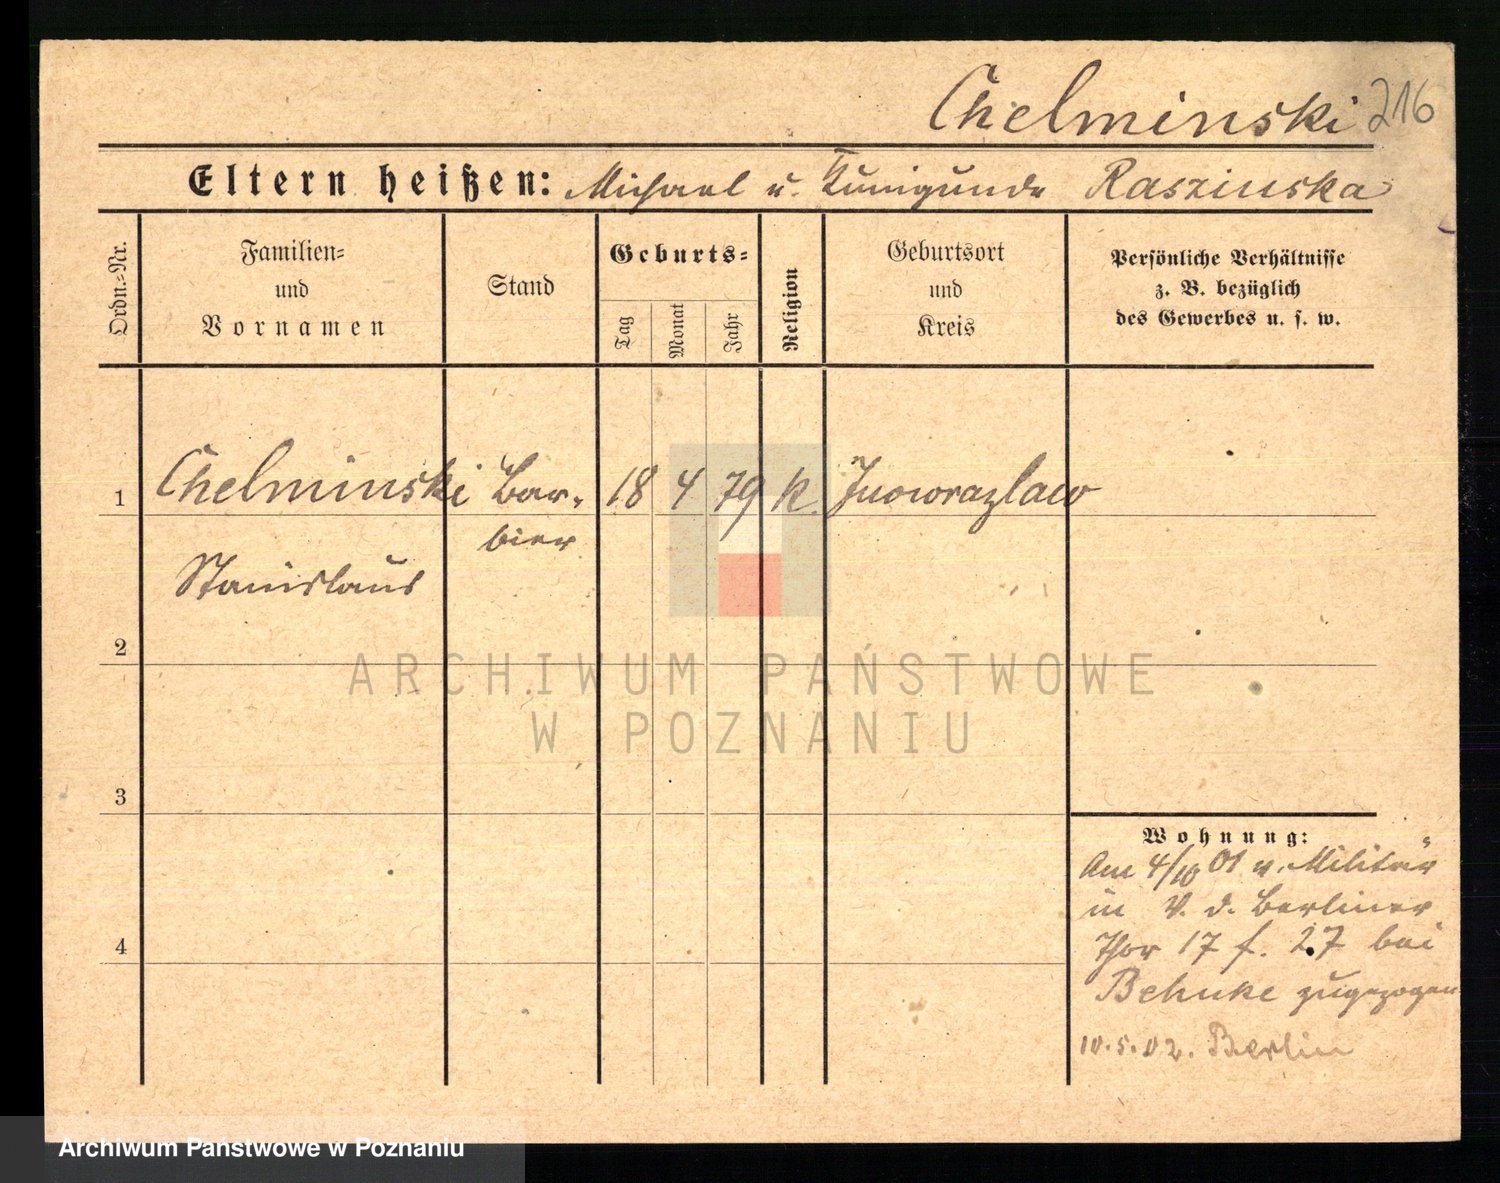 Chelminski 216
Eltern heißen: Michael u. Kunigunde Raszinska
Ordn.=Nr.
Familien=
und
Vornamen
Stand
Geburts=
Tag
Monat
Jahr
Religion
Geburtsort
und
Kreis
Persönliche Verhältnisse
z. B. bezüglich
des Gewerbes u. s. w.
1 Chelminski Bar- 18 4 79 k. Inowrazlaw
bier
Stanislaus
2
ARCHIWUM PAŃSTWOWE
W POZNANIU
3
Wohnung:
Am 4/10 01 v. Militär
in V. d. Berliner
Thor 17 f. 27 bei
Behnke zugezogen
4
10.5.02. Berlin
Archiwum Państwowe w Poznaniu